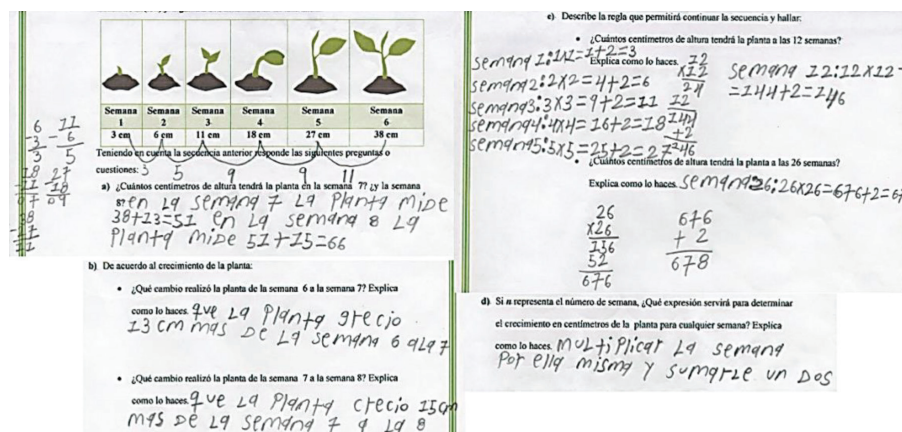 Semana 1 Semana 2 Semana 3 Semana 4 Semana 5 Semana 6
3 cm 6 cm 11 cm 18 cm 27 cm 38 cm
6
-3
3
11
-6
5
18
-11
07
27
-18
09
38
11
Teniendo en cuenta la secuencia anterior responde las siguientes preguntas o
cuestiones:
3 5 9 9 11
a) ¿Cuántos centímetros de altura tendrá la planta en la semana 7? ¿y la semana
8? en La semana 7 La Planta miDe
38+13=51 en La semana 8 La
Planta miDe 51+15=66
b) De acuerdo al crecimiento de la planta:
• ¿Qué cambio realizó la planta de la semana 6 a la semana 7? Explica
como lo haces. que La Planta grecio
13 cm mas De La semana 6 a La 7
• ¿Qué cambio realizó la planta de la semana 7 a la semana 8? Explica
como lo haces. que La Planta crecio 15cm
mas De La semana 7 a La 8
c) Describe la regla que permitirá continuar la secuencia y hallar:
• ¿Cuántos centímetros de altura tendrá la planta a las 12 semanas?
Explica como lo haces.
semana 1:1x1=1+2=3
semana2:2x2=4+2=6
semana3:3x3=9+2=11
semana4:4x4=16+2=18
semana5:5x5=25+2=27
12
x12
24
12
144
+2
146
semana 12:12x12
=144+2=146
• ¿Cuántos centímetros de altura tendrá la planta a las 26 semanas?
Explica como lo haces. semana26:26x26=676+2=67
26
x26
136
52
676
676
+ 2
678
d) Si n representa el número de semana, ¿Qué expresión servirá para determinar
el crecimiento en centímetros de la planta para cualquier semana? Explica
como lo haces. multiplicar La semana
Por ella misma y sumarLe un Dos